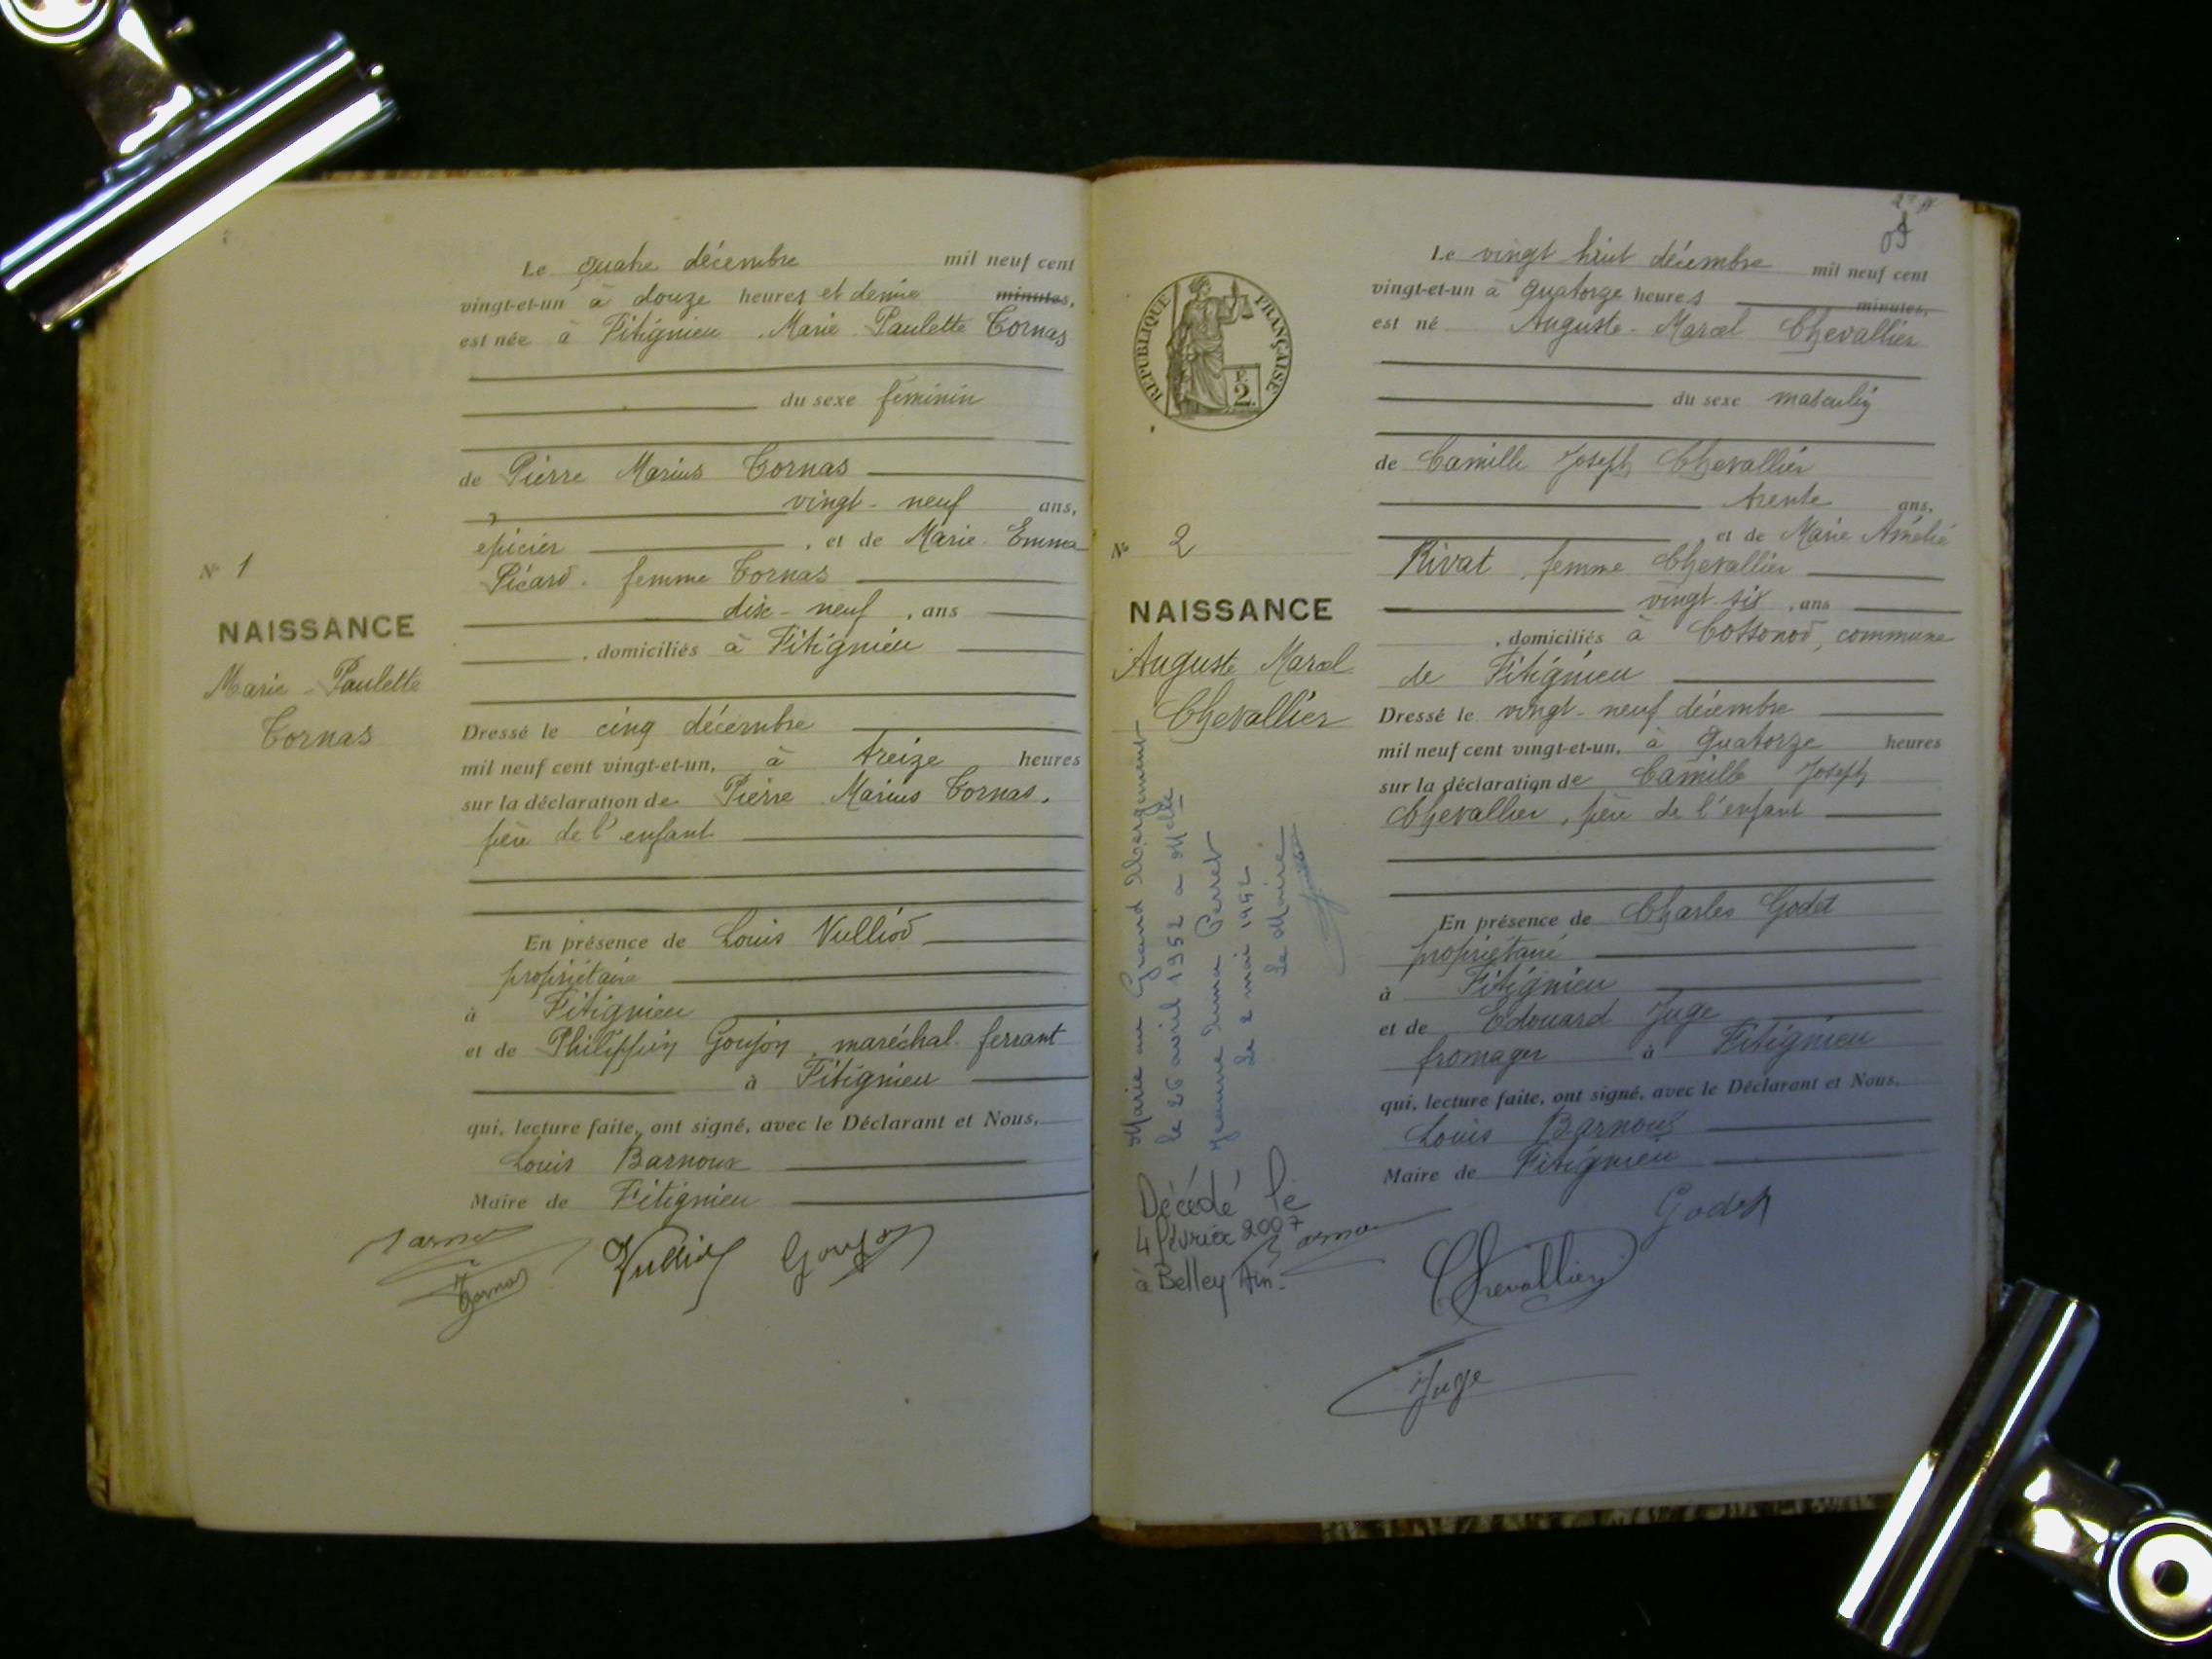 Le quatre décembre mil neuf cent
vingt-et-un à douze heures et demie minutes,
est née à Fitignieu Marie Paulette Cornas
du sexe féminin
de Pierre Marius Cornas
vingt-neuf ans,
épicier, et de Marie Emma
Picard femme Cornas
dix-neuf, ans
, domiciliés à Fitignieu
Dressé le cinq décembre
mil neuf cent vingt-et-un, à treize heures
sur la déclaration de Pierre Marius Cornas,
père de l'enfant
En présence de Louis Vulliod
propriétaire
à Fitignieu
et de Philippin Goujon, maréchal ferrant
à Fitignieu
qui, lecture faite, ont signé, avec le Déclarant et Nous,
Louis Barnoux
Maire de Fitignieu
Cornas Vulliod Goujon
N° 1
NAISSANCE
Marie-Paulette
Cornas
RÉPUBLIQUE FRANÇAISE
F.
2.
Le vingt huit décembre mil neuf cent
vingt-et-un à quatorze heures minutes,
est né Auguste-Marcel Chevallier
du sexe masculin
de Camille Joseph Chevallier
trente ans,
, et de Marie Amélie
Rivat femme Chevallier
vingt-six, ans
, domiciliés à Cossonod, commune
de Fitignieu
Dressé le vingt-neuf décembre
mil neuf cent vingt-et-un, à quatorze heures
sur la déclaration de Camille Joseph
Chevallier, père de l'enfant
En présence de Charles Godet
propriétaire
à Fitignieu
et de Edouard Juge
fromager à Fitignieu
qui, lecture faite, ont signé, avec le Déclarant et Nous,
Louis Barnoux
Maire de Fitignieu
Godet
Chevallier
Juge
N° 2
NAISSANCE
Auguste Marcel
Chevallier
Marié au Grand Abergement
le 26 avril 1952 a Melle
Jeanne Anna Perret
Le 2 mai 1952
Le Maire
Décédé le
4 février 2007
à Belley Ain.